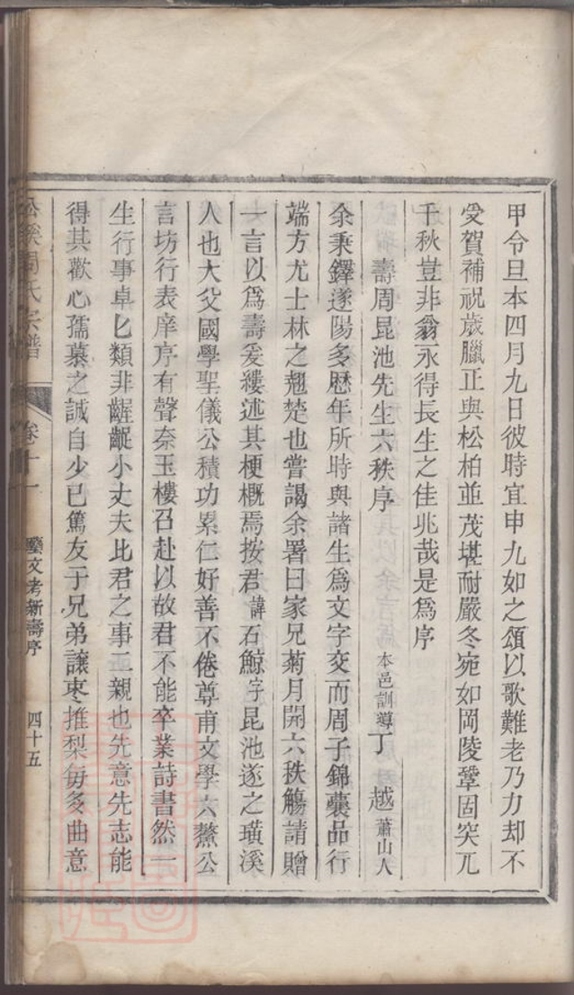 甲令旦本四月九日彼時宜申九如之頌以歌難老乃力却不
受賀補祝歲臘正與松柏並茂堪耐嚴冬宛如岡陵鞏固突兀
千秋豈非翁永得長生之佳兆哉是爲序
壽周昆池先生六秩序 本邑訓導丁 越 蕭山人
余秉鐸遂陽多歷年所時與諸生爲文字交而周子錦囊品行
端方尤士林之翹楚也嘗謁余署曰家兄菊月開六秩觴請贈
一言以爲壽爰縷述其梗概焉按君諱石鯨字昆池遂之璜溪
人也大父國學聖儀公積功累仁好善不倦尊甫文學六鰲公
言坊行表庠序有聲奈玉樓召赴以故君不能卒業詩書然一
生行事卓匕類非齷齪小丈夫比君之事二親也先意先志能
得其歡心孺慕之誠自少已篤友于兄弟讓棗推梨每多曲意
溪周氏宗譜 卷十一 藝文考新壽序 四十五